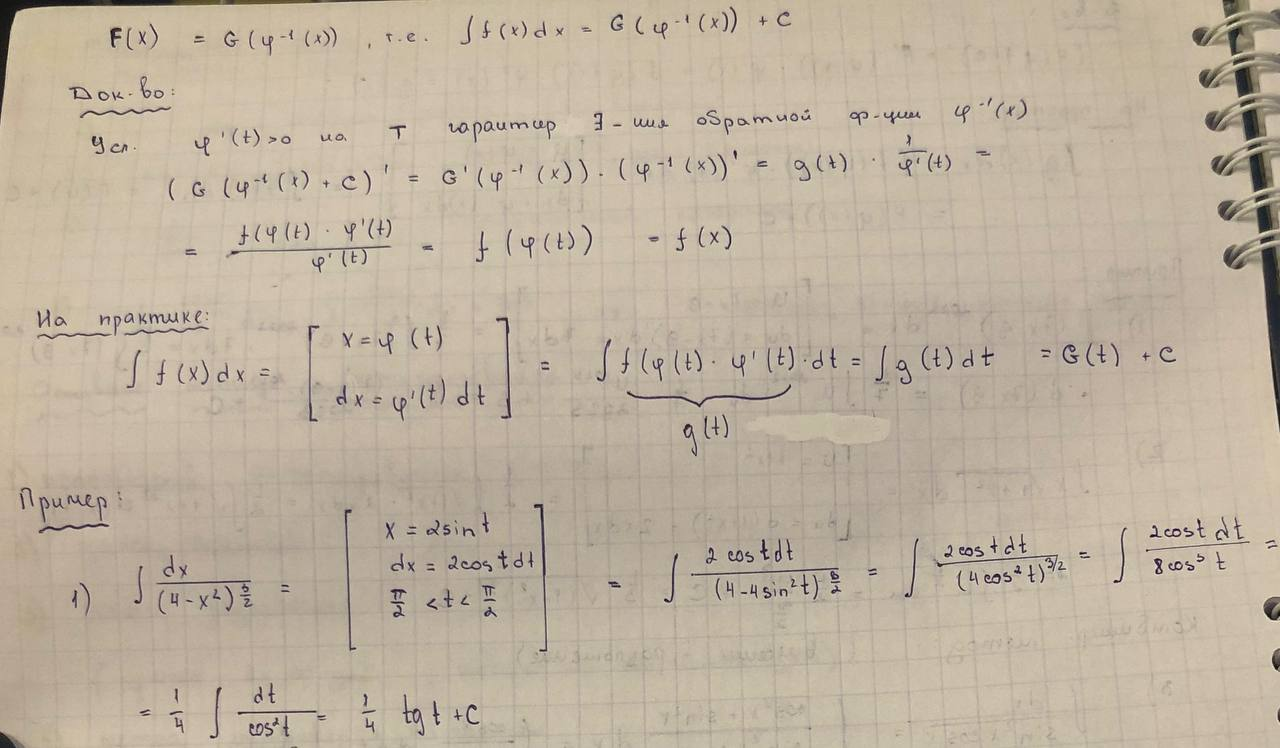 F(x) = G(φ⁻¹(x)), т.е. ∫f(x)dx = G(φ⁻¹(x)) + C
Док-во:
Усл. φ'(t)>0 на T гарантир ∃-ния обратной ф-ции φ⁻¹(x)
(G(φ⁻¹(x) + C)' = G'(φ⁻¹(x)) · (φ⁻¹(x))' = g(t) · 1/φ'(t) =
= f(φ(t) · φ'(t) / φ'(t) = f(φ(t)) = f(x)
На практике:
∫f(x)dx = [x = φ(t) dx = φ'(t)dt] = ∫f(φ(t) · φ'(t)·dt = ∫g(t)dt = G(t) + C
g(t)
Пример:
1) ∫ dx/(4-x²)^(3/2) = [x = 2sint dx = 2costdt π/2 <t< π/2] = ∫ 2costdt/(4-4sin²t)^(3/2) = ∫ 2costdt/(4cos²t)^(3/2) = ∫ 2cost dt/8cos³t =
= 1/4 ∫ dt/cos²t = 1/4 tgt + C